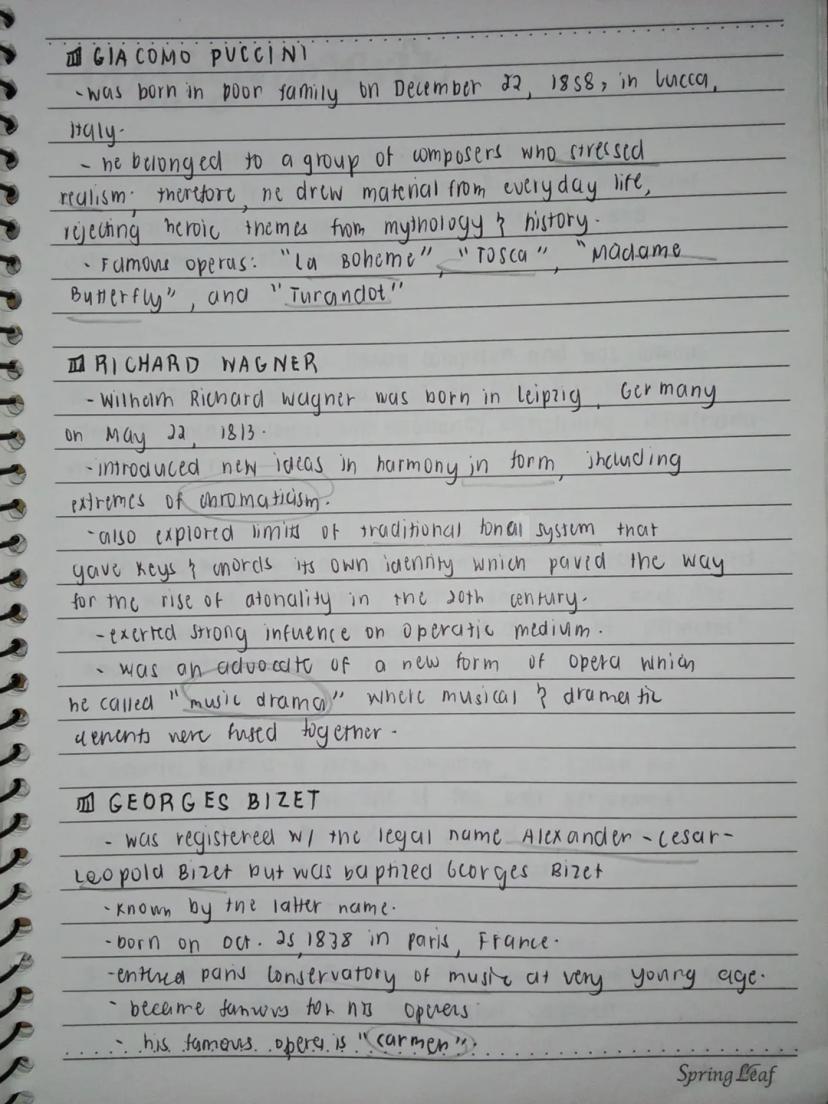 GIACOMO PUCCINI
- was born in poor family on December 22, 1858, in Lucca,
Italy.
- he belonged to a group of composers who stressed
realism; therefore, he drew material from everyday life,
rejecting heroic themes from mythology & history.
- Famous operas: "La Boheme", "Tosca", "Madame
Butterfly", and "Turandot"
RICHARD WAGNER
- Wilhelm Richard Wagner was born in Leipzig, Germany
on May 22, 1813.
- introduced new ideas in harmony in form, including
extremes of chromaticism.
- also explored limits of traditional tonal system that
gave keys & chords its own identity which paved the way
for the rise of atonality in the 20th century.
- exerted strong infuence on operatic medium.
- was an advocate of a new form of opera which
he called "music drama" where musical & dramatic
elements were fused together.
GEORGES BIZET
- was registered w/ the legal name Alexander-Cesar-
Leopold Bizet but was baptized Georges Bizet
- known by the latter name.
- born on Oct. 25, 1838 in Paris, France.
- entered Paris Conservatory of music at very young age.
- became famous for his operers
- his famous opera is "Carmen".
Spring Leaf